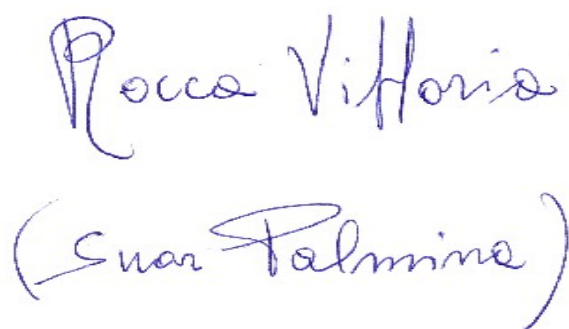 Rocca Vittoria
(Suor Palmina)